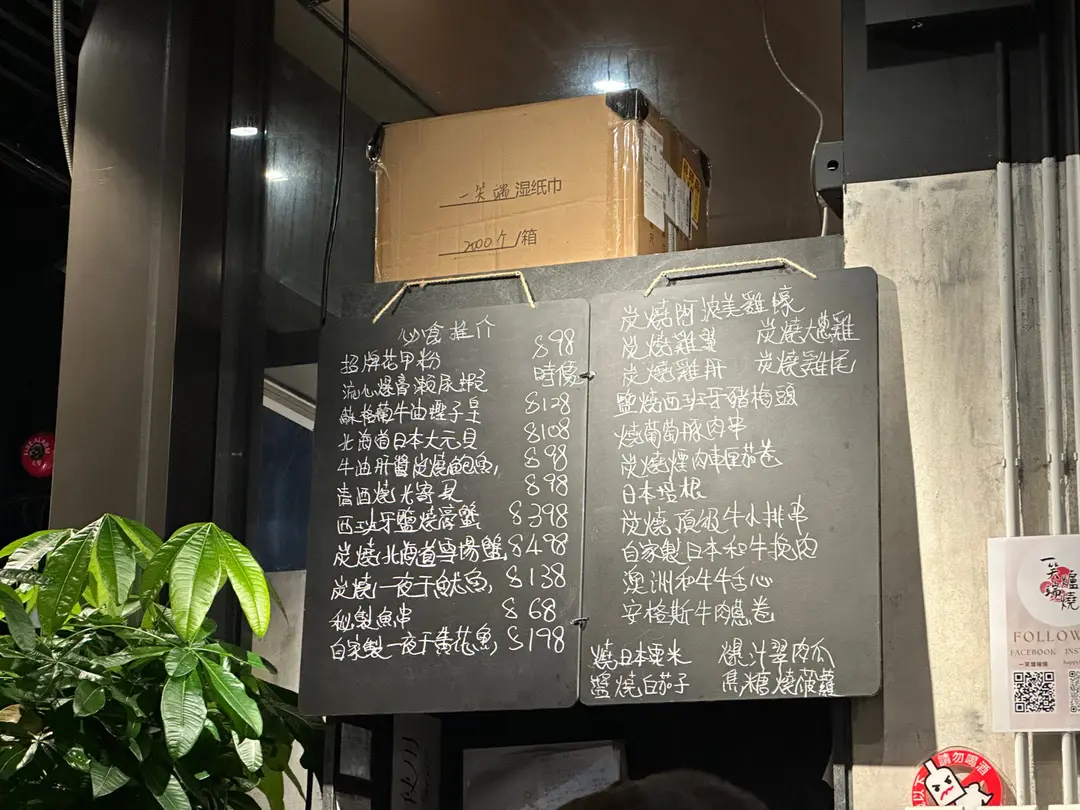 一笑 湿纸巾
2000个/箱
必食推介
招牌花甲粉 $98
流心爆膏瀨尿蝦 時價
蘇格蘭牛油蟶子皇 $128
北海道日本大元貝 $108
牛油肝醬炭燒鮑魚 $98
清酒燒 $98
西班牙鹽燒膏蟹 $398
炭燒北海道雪場蟹 $498
炭燒一夜干魷魚 $138
秘製魚串 $68
自家製一夜干黃花魚 $198
炭燒阿波美雞
炭燒雞翼 炭燒大蔥雞
炭燒雞肝 炭燒雞尾
鹽燒西班牙豬梅頭
燒葡萄豚肉串
炭燒煙肉車厘茄卷
日本培根
炭燒頂級牛小排串
自家製日本和牛
澳洲和牛牛舌心
安格斯牛肉蔥卷
燒日本粟米 爆汁翠肉瓜
鹽燒白茄子 焦糖燒菠蘿
FIRE ALARM
一笑爐端燒
FOLLOW
FACEBOOK INS
一笑爐端燒
請勿喝酒
以下